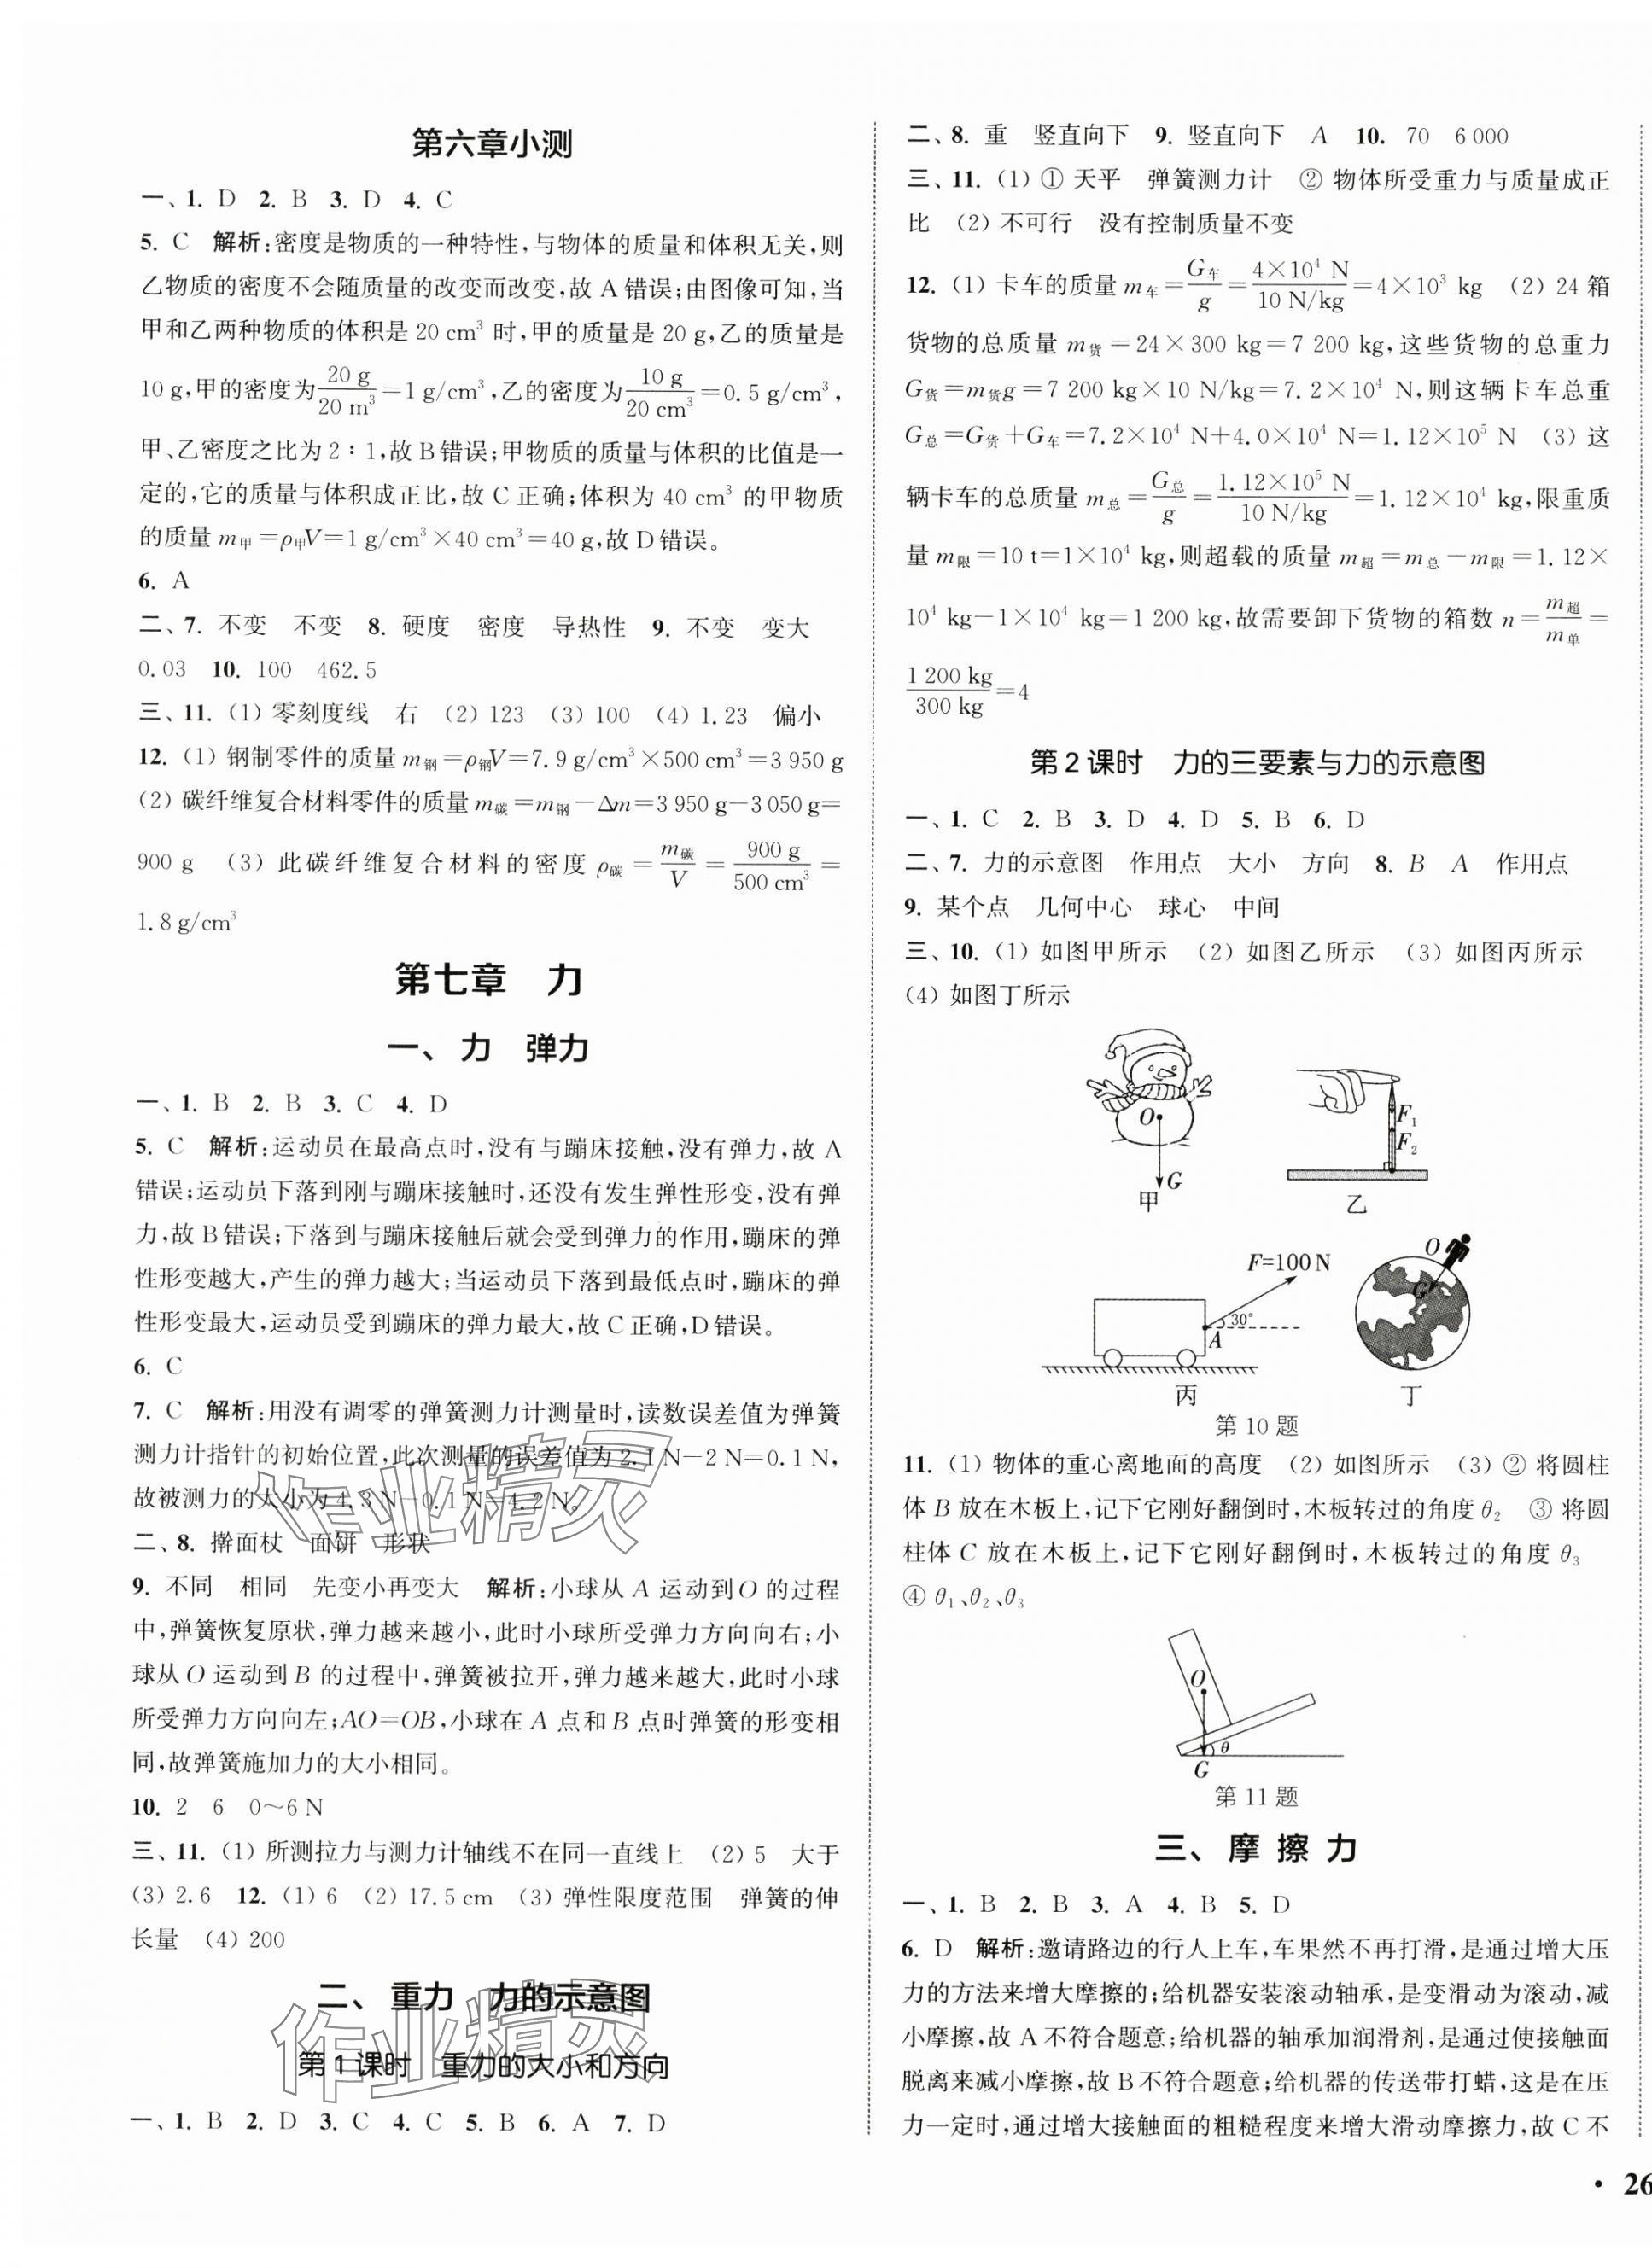 第六章小测
一、1. D 2. B 3. D 4. C
5. C 解析:密度是物质的一种特性,与物体的质量和体积无关,则
乙物质的密度不会随质量的改变而改变,故 A 错误;由图像可知,当
甲和乙两种物质的体积是 20 cm³ 时,甲的质量是 20 g,乙的质量是
10 g,甲的密度为 20 g/20 m³ =1 g/cm³,乙的密度为 10 g/20 cm³ =0. 5 g/cm³,
甲、乙密度之比为 2∶1,故 B 错误;甲物质的质量与体积的比值是一
定的,它的质量与体积成正比,故 C 正确;体积为 40 cm³ 的甲物质
的质量 m甲=ρ甲V=1 g/cm³×40 cm³=40 g,故 D 错误。
6. A
二、7. 不变 不变 8. 硬度 密度 导热性 9. 不变 变大
0.03 10. 100 462.5
三、11. (1) 零刻度线 右 (2) 123 (3) 100 (4) 1. 23 偏小
12. (1) 钢制零件的质量 m钢=ρ钢V=7. 9 g/cm³×500 cm³=3 950 g
(2) 碳纤维复合材料零件的质量 m碳=m钢-Δm=3 950 g-3 050 g=
900 g (3) 此碳纤维复合材料的密度 ρ碳 = m碳/V = 900 g/500 cm³ =
1. 8 g/cm³
第七章 力
一、力 弹力
一、1. B 2. B 3. C 4. D
5. C 解析:运动员在最高点时,没有与蹦床接触,没有弹力,故 A
错误;运动员下落到刚与蹦床接触时,还没有发生弹性形变,没有弹
力,故 B 错误;下落到与蹦床接触后就会受到弹力的作用,蹦床的弹
性形变越大,产生的弹力越大;当运动员下落到最低点时,蹦床的弹
性形变最大,运动员受到蹦床的弹力最大,故 C 正确,D 错误。
6. C
7. C 解析:用没有调零的弹簧测力计测量时,读数误差值为弹簧
测力计指针的初始位置,此次测量的误差值为 2. 1 N-2 N=0. 1 N,
故被测力的大小为 4. 3 N-0. 1 N=4. 2 N。
作业精灵
二、8. 擀面杖 面饼 形状
9. 不同 相同 先变小再变大 解析:小球从 A 运动到 O 的过程
中,弹簧恢复原状,弹力越来越小,此时小球所受弹力方向向右;小
球从 O 运动到 B 的过程中,弹簧被拉开,弹力越来越大,此时小球
所受弹力方向向左;AO=OB,小球在 A 点和 B 点时弹簧的形变相
同,故弹簧施加力的大小相同。
10. 2 6 0～6 N
三、11. (1) 所测拉力与测力计轴线不在同一直线上 (2) 5 大于
(3) 2. 6 12. (1) 6 (2) 17. 5 cm (3) 弹性限度范围 弹簧的伸
长量 (4) 200
二、重力 力的示意图
作业精灵
第 1 课时 重力的大小和方向
一、1. B 2. D 3. C 4. C 5. B 6. A 7. D
二、8. 重 竖直向下 9. 竖直向下 A 10. 70 6 000
三、11. (1) ① 天平 弹簧测力计 ② 物体所受重力与质量成正
比 (2) 不可行 没有控制质量不变
12. (1) 卡车的质量 m车= G车/g = 4×10⁴ N/10 N/kg =4×10³ kg (2) 24 箱
货物的总质量 m货=24×300 kg=7 200 kg,这些货物的总重力
G货=m货g=7 200 kg×10 N/kg=7. 2×10⁴ N,则这辆卡车总重
G总=G货+G车=7. 2×10⁴ N+4. 0×10⁴ N=1. 12×10⁵ N (3) 这
辆卡车的总质量 m总= G总/g = 1. 12×10⁵ N/10 N/kg =1. 12×10⁴ kg,限重质
量 m限=10 t=1×10⁴ kg,则超载的质量 m超=m总-m限=1. 12×
10⁴ kg-1×10⁴ kg=1 200 kg,故需要卸下货物的箱数 n= m超/m单 =
1 200 kg/300 kg =4
第 2 课时 力的三要素与力的示意图
一、1. C 2. B 3. D 4. D 5. B 6. D
二、7. 力的示意图 作用点 大小 方向 8. B A 作用点
9. 某个点 几何中心 球心 中间
三、10. (1) 如图甲所示 (2) 如图乙所示 (3) 如图丙所示
(4) 如图丁所示
O
G
甲
F₁
F₂
乙
F=100 N
30°
A
丙
O
G
丁
第 10 题
11. (1) 物体的重心离地面的高度 (2) 如图所示 (3) ② 将圆柱
体 B 放在木板上,记下它刚好翻倒时,木板转过的角度 θ₂ ③ 将圆
柱体 C 放在木板上,记下它刚好翻倒时,木板转过的角度 θ₃
④ θ₁、θ₂、θ₃
O
θ
G
第 11 题
三、摩擦力
一、1. B 2. B 3. A 4. B 5. D
6. D 解析:邀请路边的行人上车,车果然不再打滑,是通过增大压
力的方法来增大摩擦的;给机器安装滚动轴承,是变滑动为滚动,减
小摩擦,故 A 不符合题意;给机器的轴承加润滑剂,是通过使接触面
脱离来减小摩擦,故 B 不符合题意;给机器的传送带打蜡,这是在压
力一定时,通过增大接触面的粗糙程度来增大滑动摩擦力,故 C 不
· 26